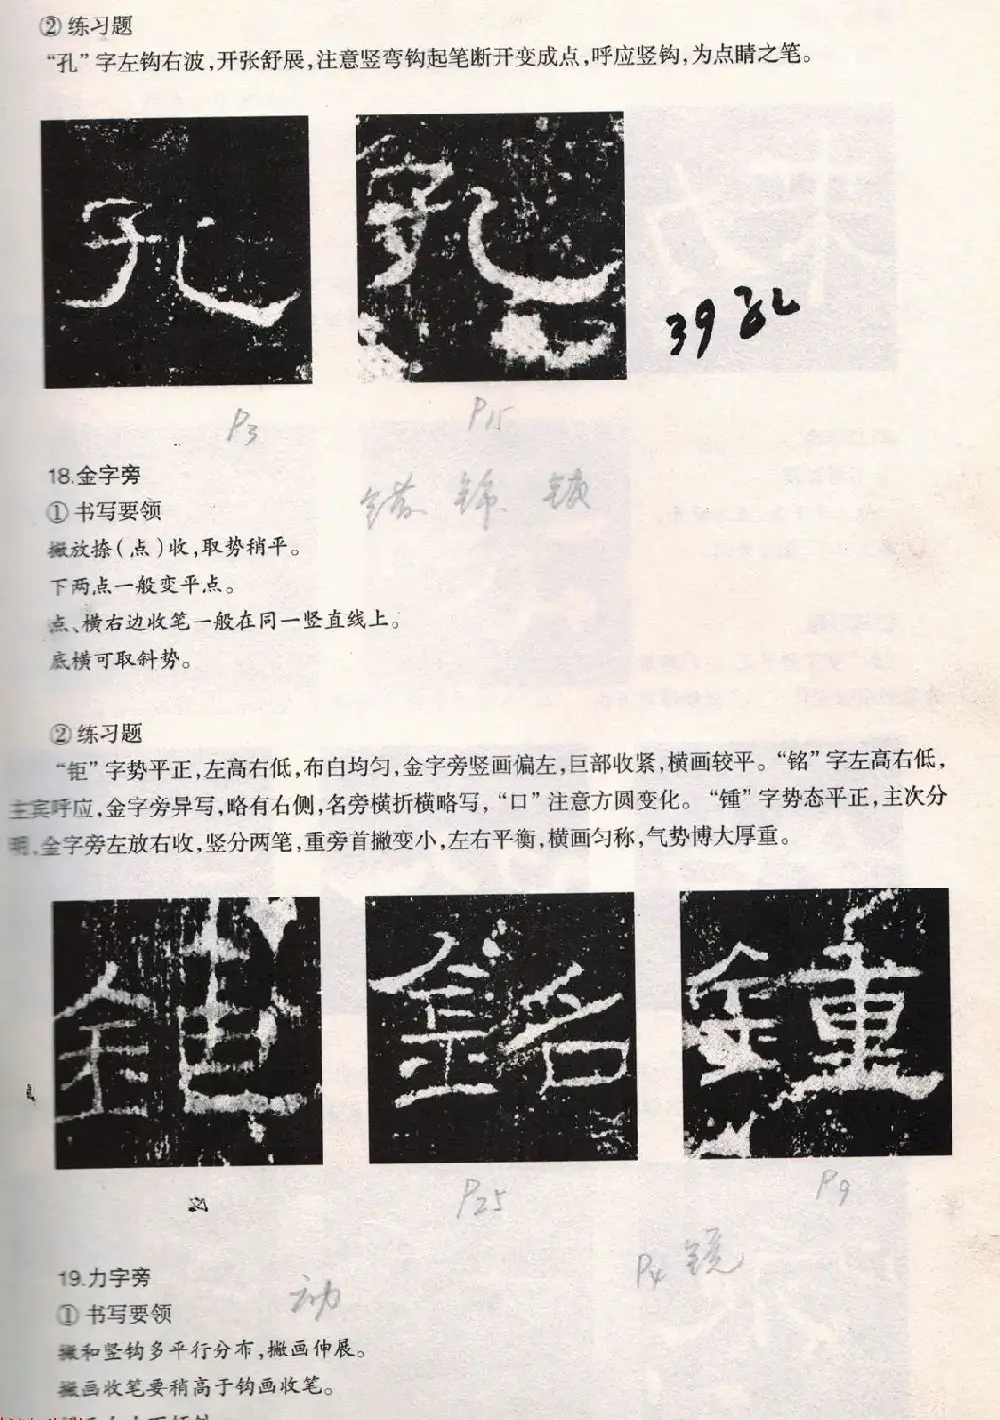 ② 练习题
“孔”字左钩右波，开张舒展，注意竖弯钩起笔断开变成点，呼应竖钩，为点睛之笔。
孔 孔
39 孔
P3 P15
18.金字旁
① 书写要领
撇放捺（点）收，取势稍平。
下两点一般变平点。
点、横右边收笔一般在同一竖直线上。
底横可取斜势。
② 练习题
“钜”字势平正，左高右低，布白均匀，金字旁竖画偏左，巨部收紧，横画较平。“铭”字左高右低，
主宾呼应，金字旁异写，略有右侧，名旁横折横略写，“口”注意方圆变化。“锺”字势态平正，主次分
明，金字旁左放右收，竖分两笔，重旁首撇变小，左右平衡，横画匀称，气势博大厚重。
鉅 銘 鍾
P25 P9
P4 镜
19.力字旁
动
① 书写要领
撇和竖钩多平行分布，撇画伸展。
撇画收笔要稍高于钩画收笔。